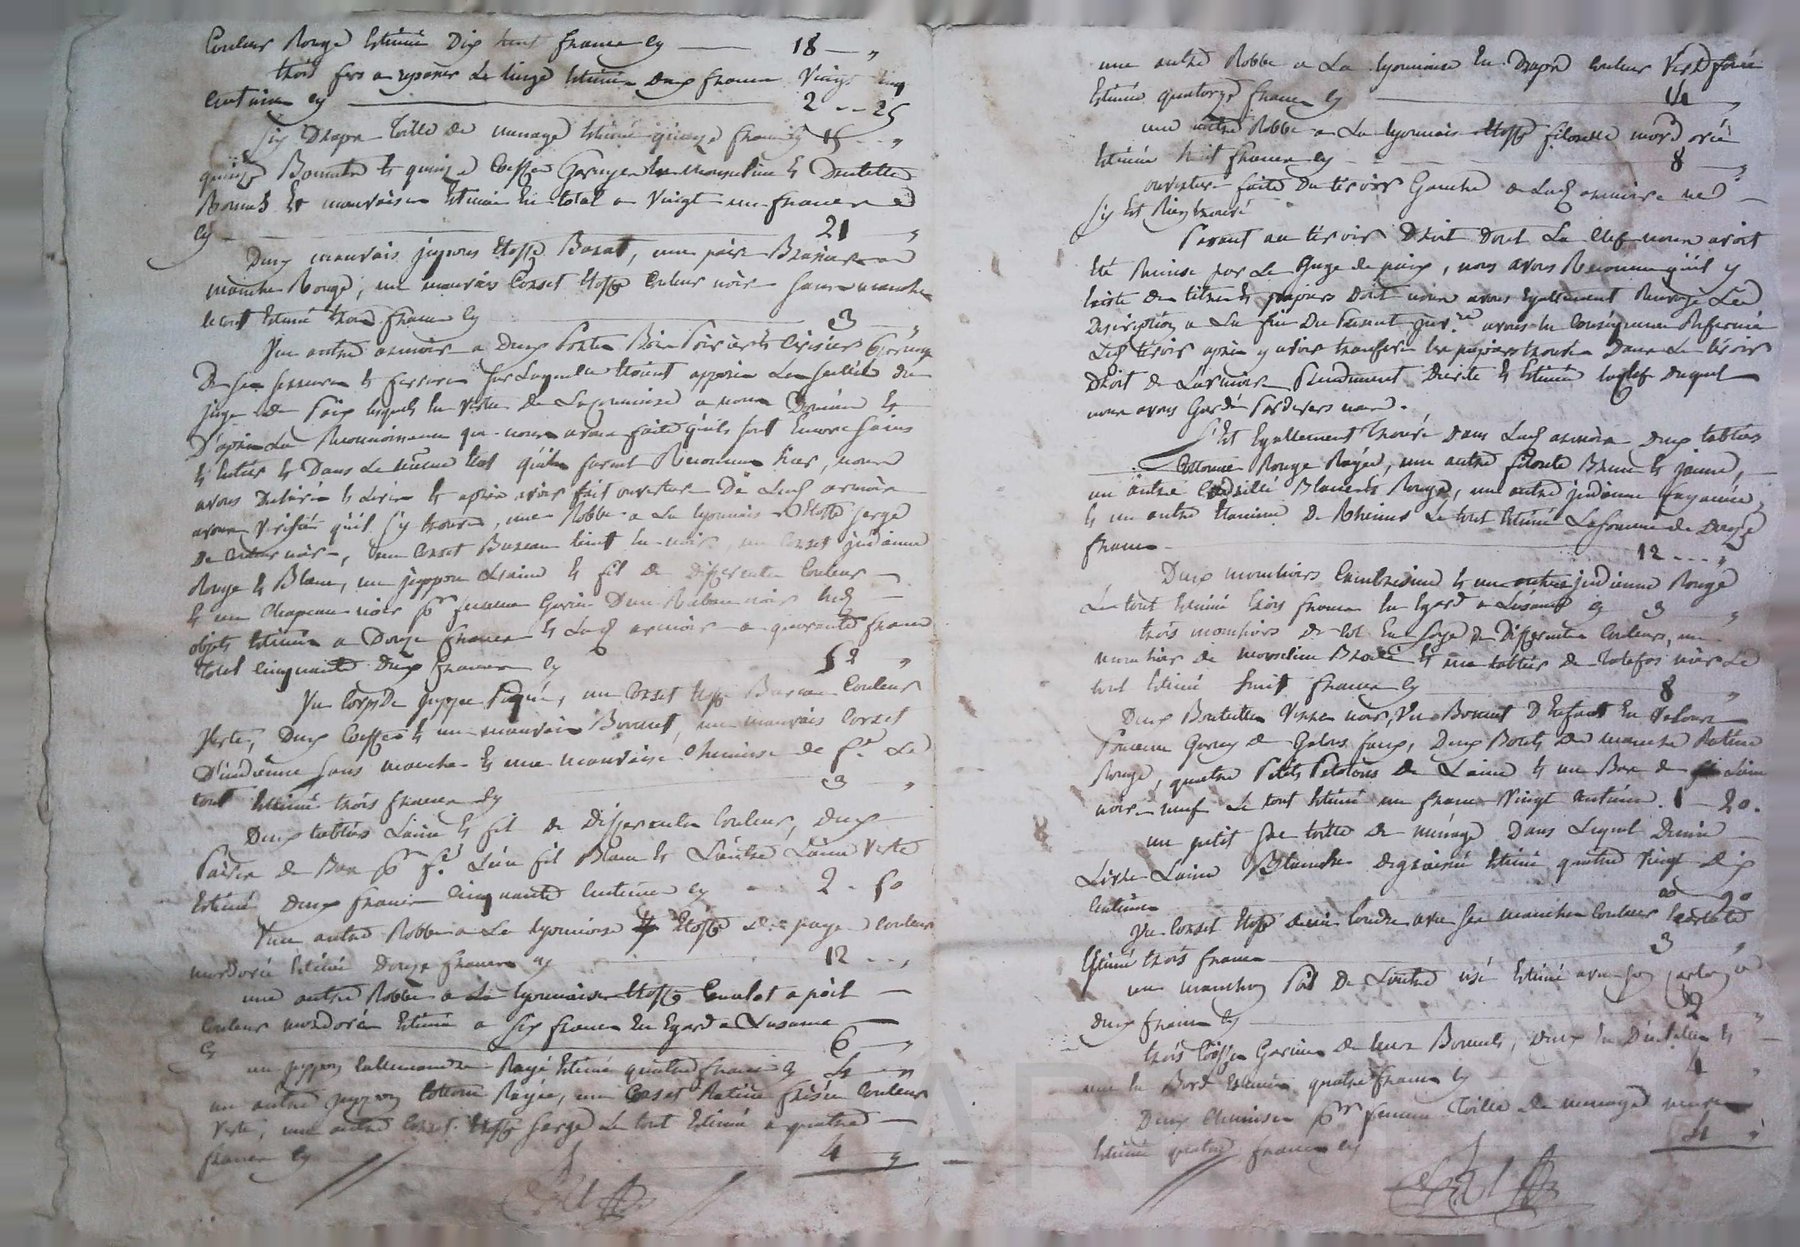 Couleur Rouge Estimée Dix huit francs cy 18 "
trois fers a repasser Le Linge Estimés deux francs Vingt cinq
Centimes cy 2 25
Six Draps Toille de menage Estimé quinze francs cy 15 "
quinze Bonnets et quinze Coeffes Garnye en Mousseline et Dentelle
Bonnes et mauvaises Estimés En total a Vingt un francs
cy 21 "
Deux mauvais juppons Etoffe Bazat, une paire Brassiere
manche Rouge, un mauvais Corset Etoffe Couleur noir sans manche
le tout Estimé trois francs cy 3 "
Une autre armoire a Deux Portes Bois Poirier et Cerisier Garnie
De ses serrures et ferrures sur laquelle étoient apposés Les scellés du
juge de Paix lequel en Vertu de La Commise a nous Donnée et
D'après La Reconnoissance que nous avons faite qu'ils sont Encore sains
et Entiers et Dans Le même Etat qu'ils furent Reconnus hier, nous
avons et après avoir fait ouverture De Lad armoire
avons Vérifié qu'il s'y trouve, une Robbe a La lyonnoise Etoffe serge
De noir, un Corset Bureau teint en noir, un Corset indienne
Rouge et Blanc, un juppon Laine et fil de Differente Couleur
et un Chapeau noir pr femme Garni D'un Ruban noir Lesd
objets Estimés a Douze francs et Lad armoire a quarante francs
total Cinquante Deux francs cy 52 "
Un Corps de juppe Piqué, un Corset Etoffe Bureau Couleur
Verte, Deux Coeffes et un mauvais Bonnet, un mauvais Corset
D'indienne sans manche et une mauvaise Chemise de fe Le
tout Estimé trois francs cy 3 "
Deux tabliers Laine et fil de Differente Couleur, deux
Paires de Bas pr fe L'un fil Blanc et L'autre Laine Verte
Estimé Deux francs Cinquante Centimes cy 2 50
Une autre Robbe a La lyonnoise Etoffe de Couleur
mordorée Estimé Douze francs cy 12 "
une autre Robbe a La lyonnoise Etoffe Camelot a poil
Couleur mordorée Estimée a six francs En Egard a L'usance
cy 6 "
un juppon Calemandre Rayé Estimé quatre francs cy 4 "
un autre juppon Cottonne Rayée, un Corset Ratine frisée Couleur
Verte, un autre Corset Etoffe serge Le tout Estimé a quatre
francs cy 4 "
une autre Robbe a La lyonnoise En Drapé Couleur Verd foncé
Estimée quatorze francs cy 14 "
une autre Robbe a La lyonnoise Etoffe filoselle mordorée
Estimée huit francs cy 8 "
ouverture faite du tiroir Gauche de Lad armoire ne
s'y Est Rien trouvé
Passant au tiroir Droit Dont La Clef nous avoit
Eté Remise par Le Juge de paix, nous avons Reconnu qu'il y
Existe des titres et papiers Dont nous avons Egallement Renvoyé La
Description a La fin Du Présent Invre avons En Conséquence Refermé
Led tiroir après y avoir transféré les papiers trouvés Dans Le tiroir
Droit de L'armoire Précédemment Décrite et Estimé la clef duquel
nous avons Gardé Pardevers nous.
S'est Egallement trouvé dans Lad armoire deux tabliers
Cottonne Rouge Rayée, un autre filoselle Brune et jaune,
un autre Blanc et Rouge, un autre indienne
et un autre Etamine De Rheims Le tout Estimé La somme de Douze
francs 12 "
Deux mouchoirs et un autre indienne Rouge
Le tout Estimé trois francs En Egard a L'usance cy 3 "
trois mouchoirs de Col En Soye de Differente Couleurs, un
mouchoir de mousseline Brodé et un tablier de noir Le
tout Estimé huit francs cy 8 "
Deux Bouteilles Verre noir, Un Bonnet D'Enfant En Velours
Ponceau Garny de Galons faux, Deux Bouts de manche Ratine
Rouge, quatre Petits Pelotons de Laine et un Bas de laine
noir neuf Le tout Estimé un franc Vingt Centimes. 1 20.
un petit Sac toille de ménage Dans Lequel Demie
Livre Laine Blanche degraissée Estimé quatre Vingt Dix
Centimes 00 90
Un Corset Etoffe demi Londre avec ses manches Couleur Ecarlate
Estimé trois francs 3 "
un manchon Poil De Loutre usé Estimé avec son carton a
deux francs cy 2 "
trois Coëffes Garnies de Leurs Bonnets, deux En Dentelles et
une En Bord Estimés quatre francs cy 4 "
Deux Chemises pr femme Toille de menage
Estimé quatre francs cy 4 "